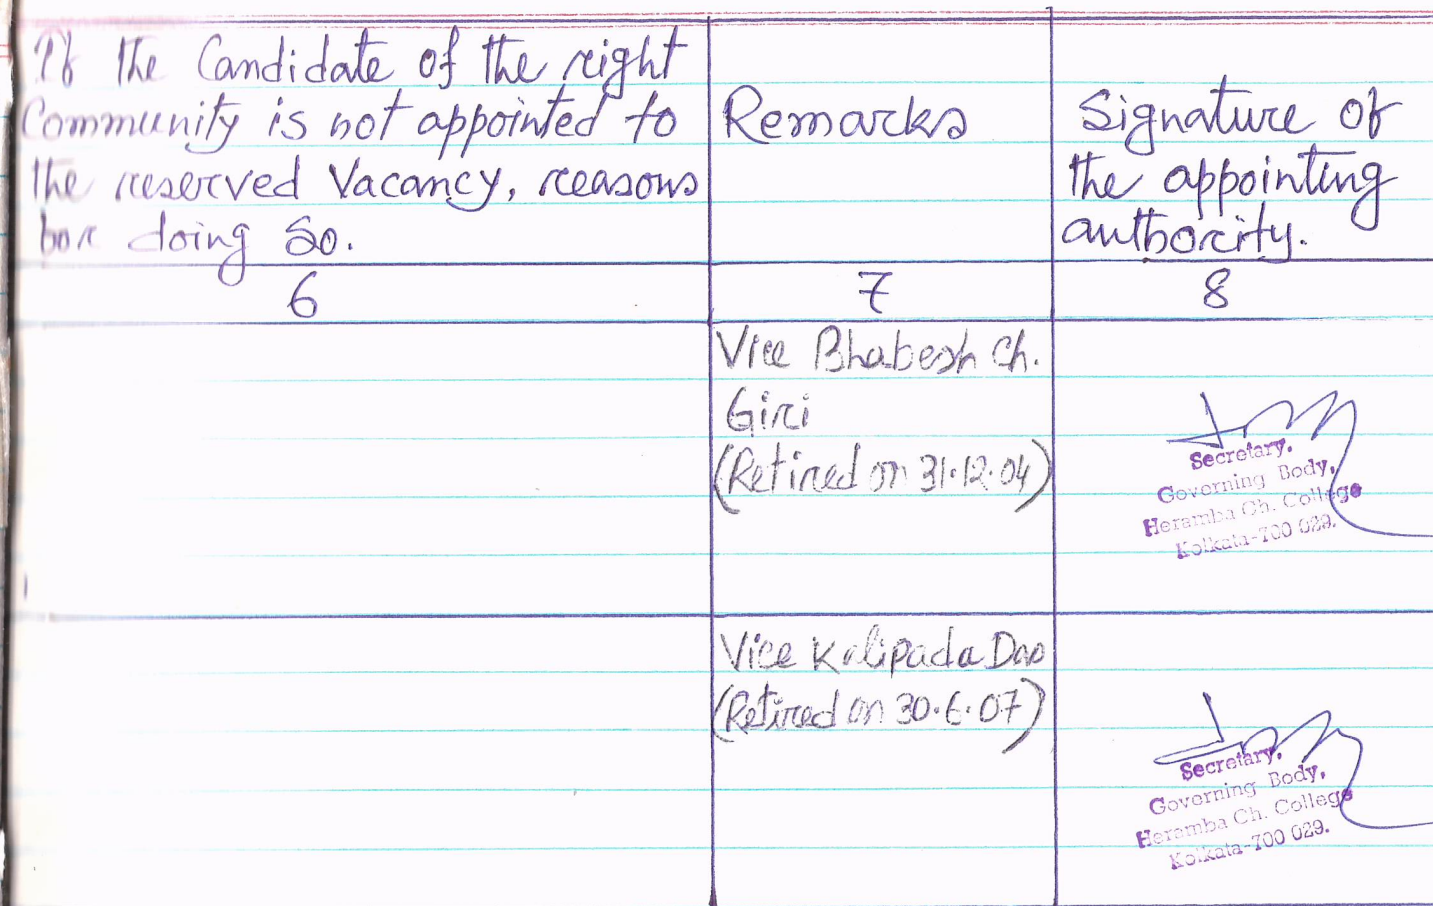 If the Candidate of the right
Community is not appointed to
the reserved Vacancy, reasons
for doing so.
Remarks
Signature of
the appointing
authority.
6
7
8
Vice Bhabesh Ch.
Giri
(Retired on 31.12.04)
Secretary,
Governing Body,
Heramba Ch. College
Kolkata-700 029.
Vice Kalipada Das
(Retired on 30.6.07)
Secretary,
Governing Body,
Heramba Ch. College
Kolkata-700 029.